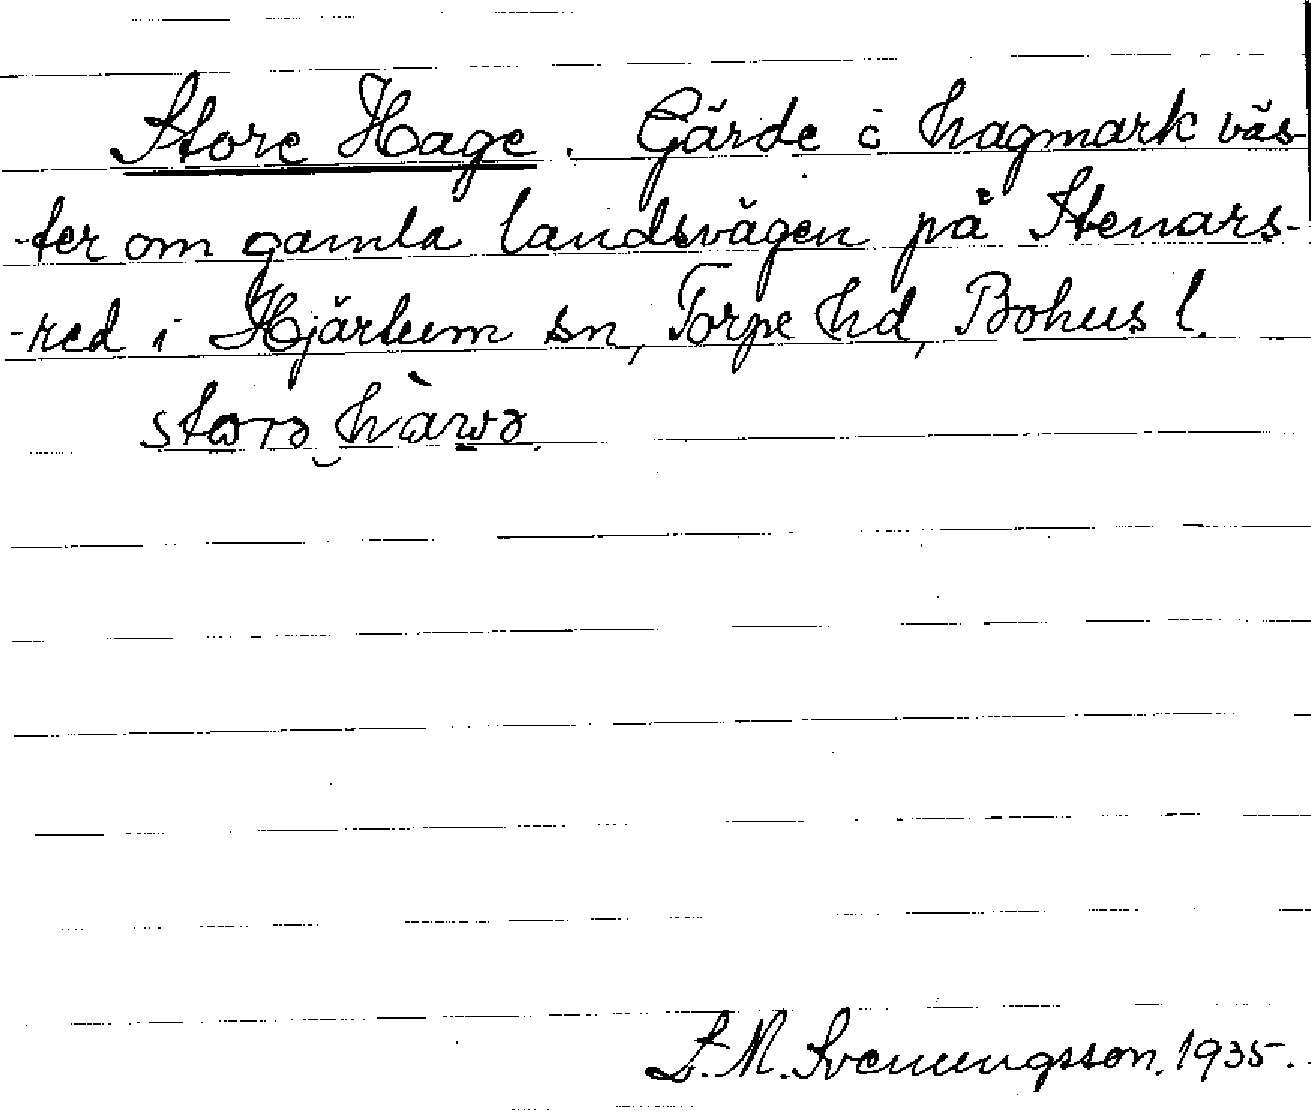 Store Hage. Gärde i hagmark väs-
-ter om gamla landsvägen på Stenars-
-red i Hjärtum sn, Torpe hd, Bohus l.
stɷrə hàwə.
L. M. Svenungsson. 1935.